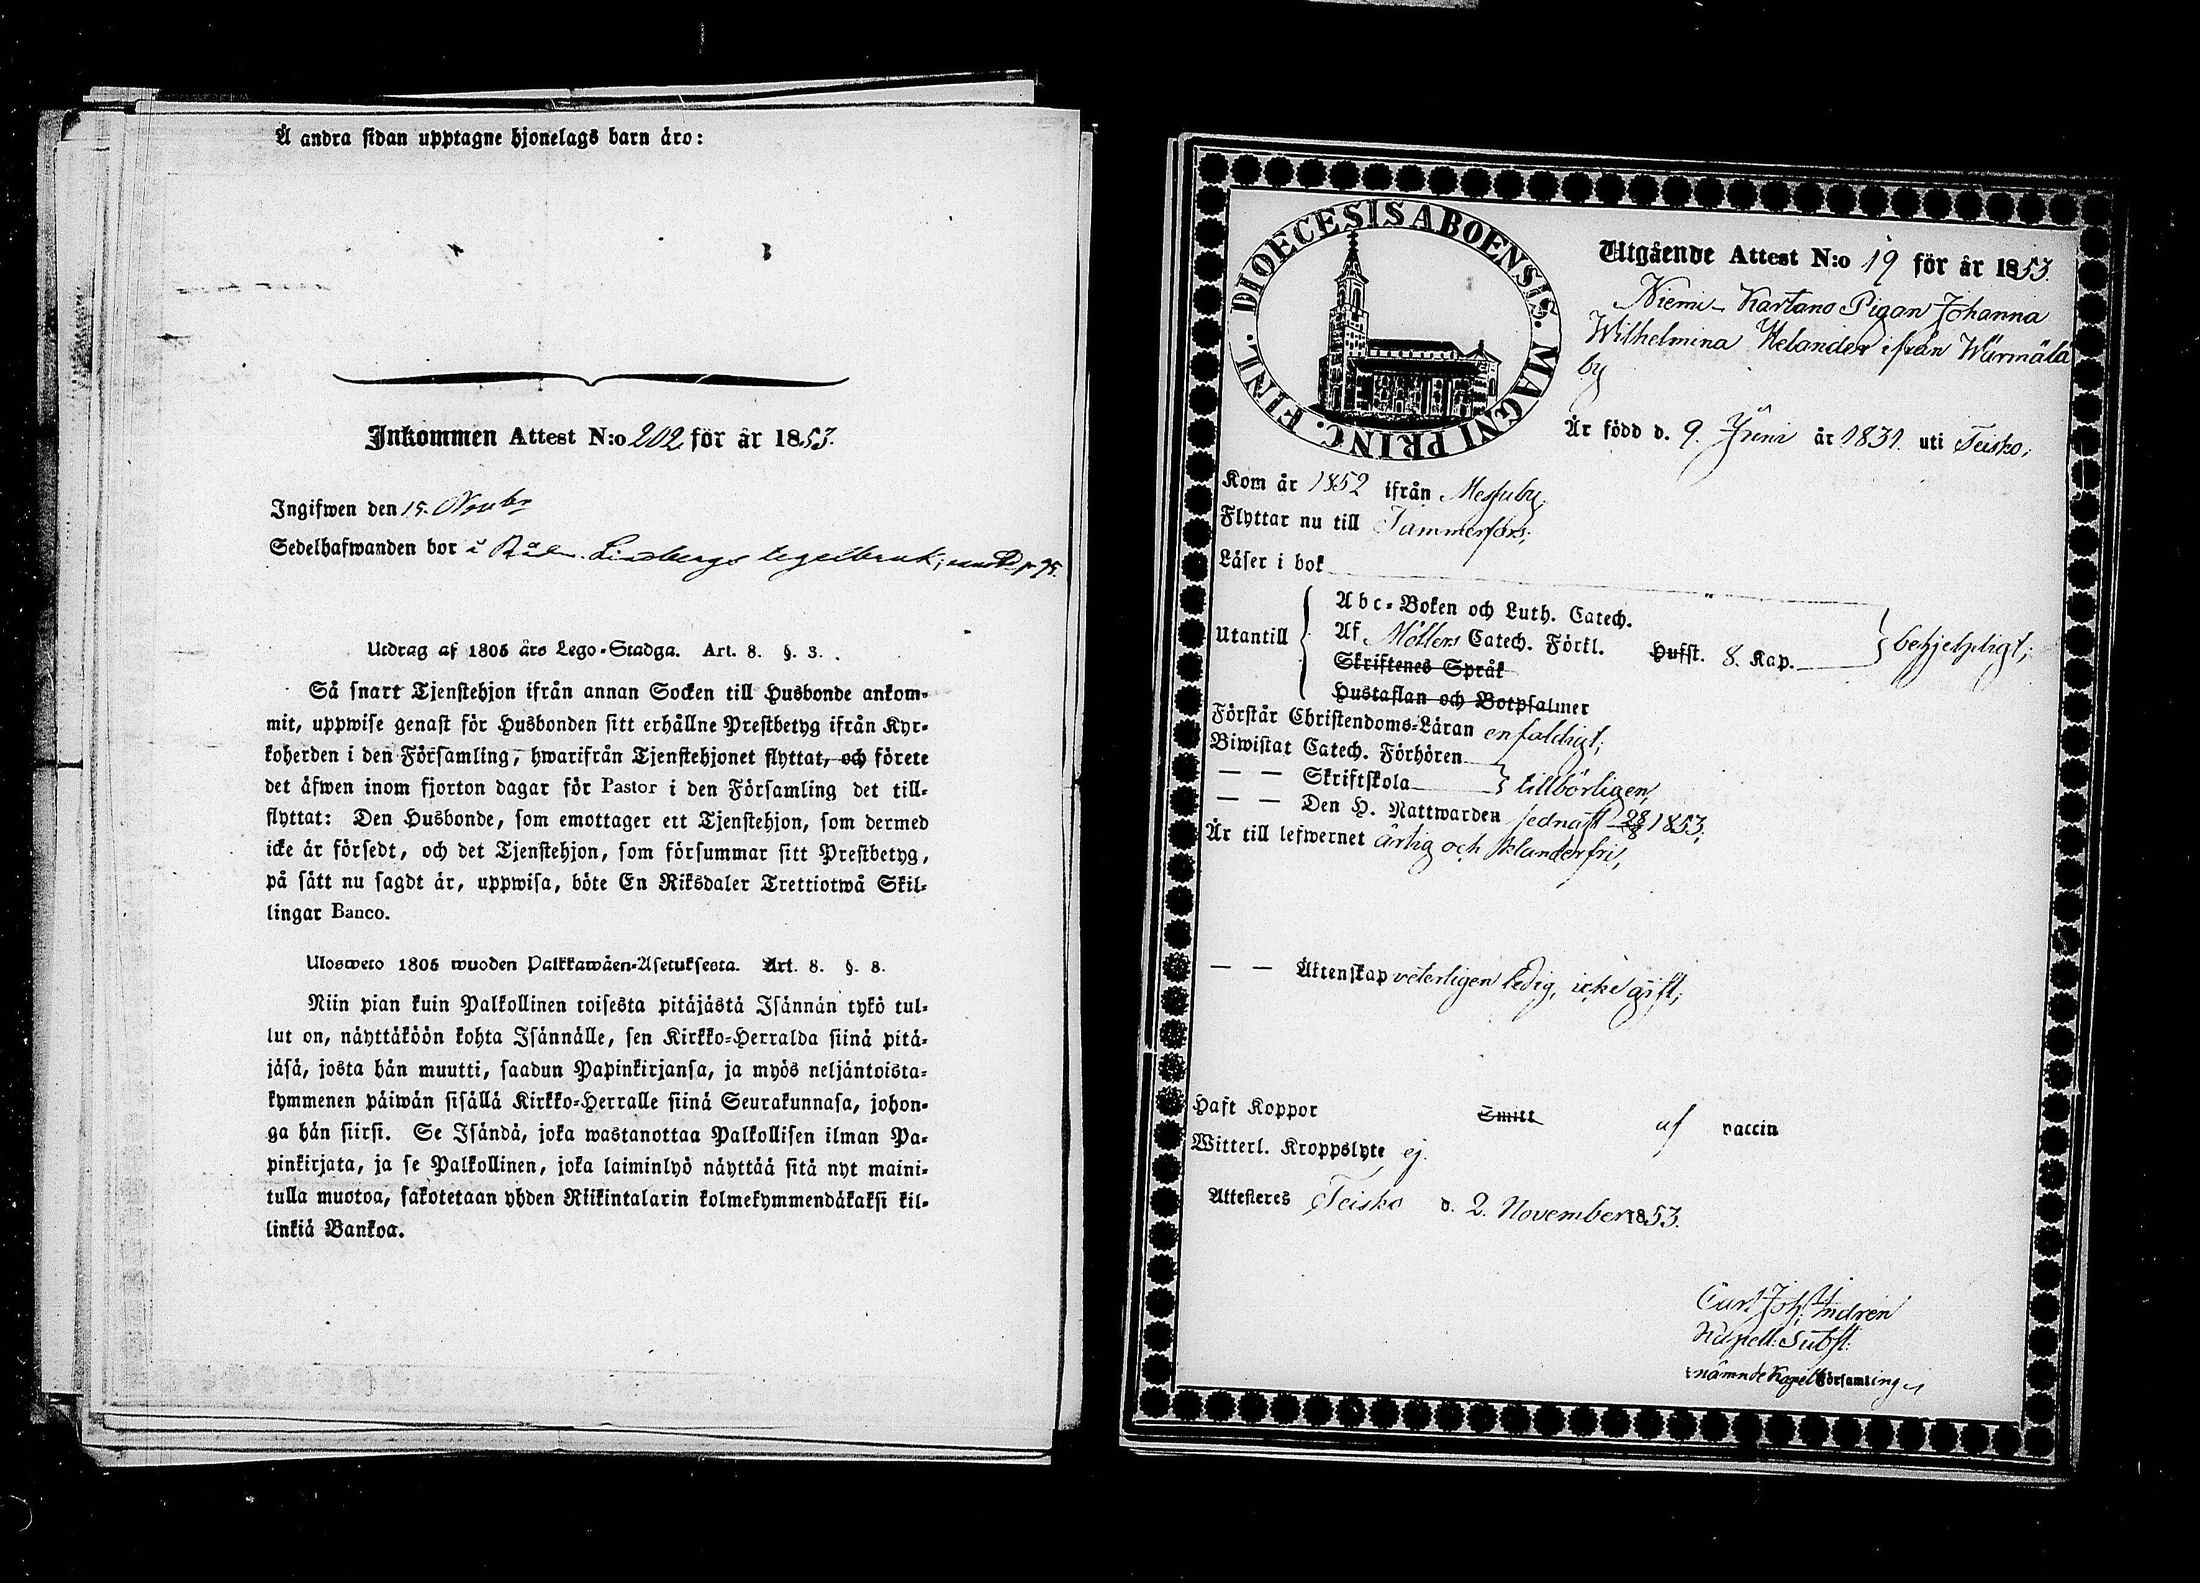 Å andra sidan upptagne hjonelags barn äro:
Inkommen Attest N:o 202 för år 1853.
Ingifwen den 15. Novbr
Sedelhafwanden bor i Rådm. Lindbergs tegelbruk; p. 75.
Utdrag af 1805 års Lego-Stadga. Art. 8. §. 3.
Så snart Tjenstehjon ifrån annan Socken till Husbonde ankom-
mit, uppwise genast för Husbonden sitt erhållne Prestbetyg ifrån Kyr-
koherden i den Församling, hwarifrån Tjenstehjonet flyttat, och förete
det äfwen inom fjorton dagar för Pastor i den Församling det till-
flyttat: Den Husbonde, som emottager ett Tjenstehjon, som dermed
icke är försedt, och det Tjenstehjon, som försummar sitt Prestbetyg,
på sätt nu sagdt är, uppwisa, böte En Riksdaler Trettiotwå Skil-
lingar Banco.
Ulosweto 1805 wuoden Palkkawäen-Asetuksesta. Art. 8. §. 8.
Niin pian kuin Palkollinen toisesta pitäjästä Isännän tykö tul-
lut on, näyttäköön kohta Isännälle, sen Kirkko-Herralda siinä pitä-
jäsä, josta hän muutti, saadun Papinkirjansa, ja myös neljäntoista-
kymmenen päiwän sisällä Kirkko-Herralle siinä Seurakunnasa, johon-
ga hän siirsi. Se Isändä, joka wastanottaa Palkollisen ilman Pa-
pinkirjata, ja se Palkollinen, joka laiminlyö näyttää sitä nyt maini-
tulla muotoa, sakotetaan yhden Riikintalarin kolmekymmendäkaksi kil-
linkiä Bankoa.
DIOECESIS ABOENSIS. MAGNI PRINC. FINL.
Utgående Attest N:o 19 för år 1853.
Niemi-Kartano Pigan Johanna
Wilhelmina Helander ifrån Wärmälä
by
Är född d. 9. Juni år 1831. uti Teisko;
Kom år 1852 ifrån Messuby;
Flyttar nu till Tammerfors;
Läser i bok "
Utantill Abc-Boken och Luth. Catech.
Af Möllers Catech. Förkl. Hufst. 8. Kap. behjelpligt;
Skriftenes Språk
Hustaflan och Botpsalmer
Förstår Christendoms-Läran enfaldigt;
Biwistat Catech. Förhören
— — Skriftskola tillbörligen,
— — Den H. Nattwarden sednast 28/8 1853;
Är till lefwernet ärlig och klanderfri,
— — Äktenskap veterligen ledig, icke gift;
Haft Koppor Smitt af vaccin
Witterl. Kroppslyte ej.
Attesteres Teisko d. 2. November 1853.
Carl Joh: Indrén
Kapell: Subst:
nämnde Kapell församling